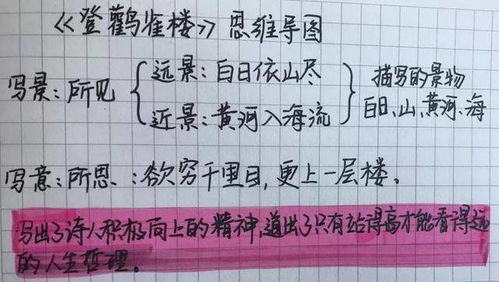 《登鹳雀楼》思维导图
写景:所见 { 远景:白日依山尽
近景:黄河入海流 } 描写的景物
白日、山、黄河、海
写意:所思:欲穷千里目,更上一层楼。
写出了诗人积极向上的精神,道出了只有站得高才能看得远
的人生哲理。